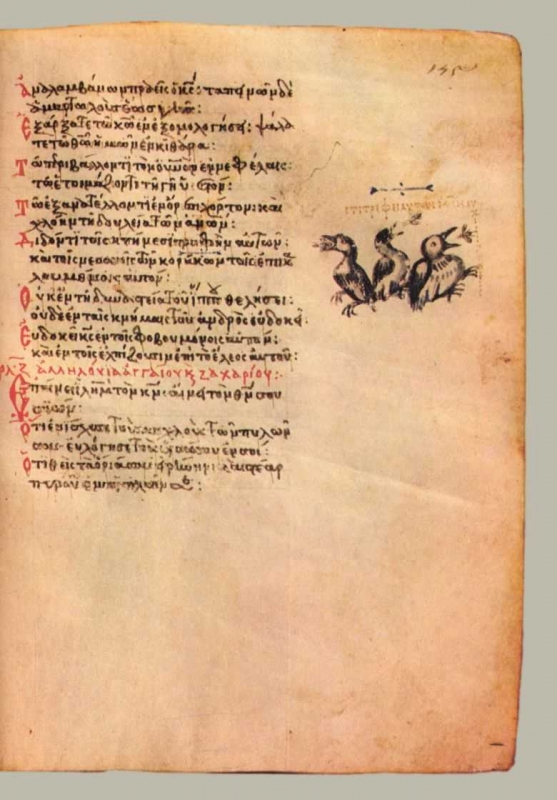 Ἀναλαμβάνων πραεῖς ὁ κς: ταπεινῶν δὲ
ἁμαρτωλοὺς ἕως γῆς:
Ἐξάρξατε τῷ κω ἐν ἐξομολογήσει: ψάλα
τε τῷ θω ἡμῶν ἐν κιθάρα:
Τῷ περιβάλλοντι τὸν οὐνὸν ἐν νεφέλαις:
τῷ ἑτοιμάζοντι τῇ γῇ ὑετόν:
Τῷ ἐξανατέλλοντι ἐν ὄρεσι χόρτον: καὶ
χλόην τῇ δουλεία τῶν ἀνων:
Διδόντι τοῖς κτήνεσι τροφὴν αὐτῶν:
καὶ τοῖς νεοσσοῖς τῶν κοράκων τοῖς ἐπικα
λουμένοις αὐτόν:
Οὐκ ἐν τῇ δυναστεία τοῦ ἵππου θελήσει:
οὐδὲ ἐν ταῖς κνήμαις τοῦ ἀνδρὸς εὐδοκεῖ
Εὐδοκεῖ κς ἐν τοῖς φοβουμένοις αὐτόν:
καὶ ἐν τοῖς ἐλπίζουσιν ἐπὶ τὸ ἔλεος αὐτοῦ:
ἀλληλούια ἀγγαίου κ ζαχαρίου:
Ἐπαίνει ἱλημ τὸν κν: αἴνει τὸν θν σου
σιών:
Ὅτι ἐνίσχυσε τοὺς μοχλοὺς τῶν πυλῶν
σου: εὐλόγησε τοὺς υἱούς σου ἐν σοί:
Ὁ τιθεὶς τὰ ὅριά σου εἰρήνην: καὶ στέαρ
πυροῦ